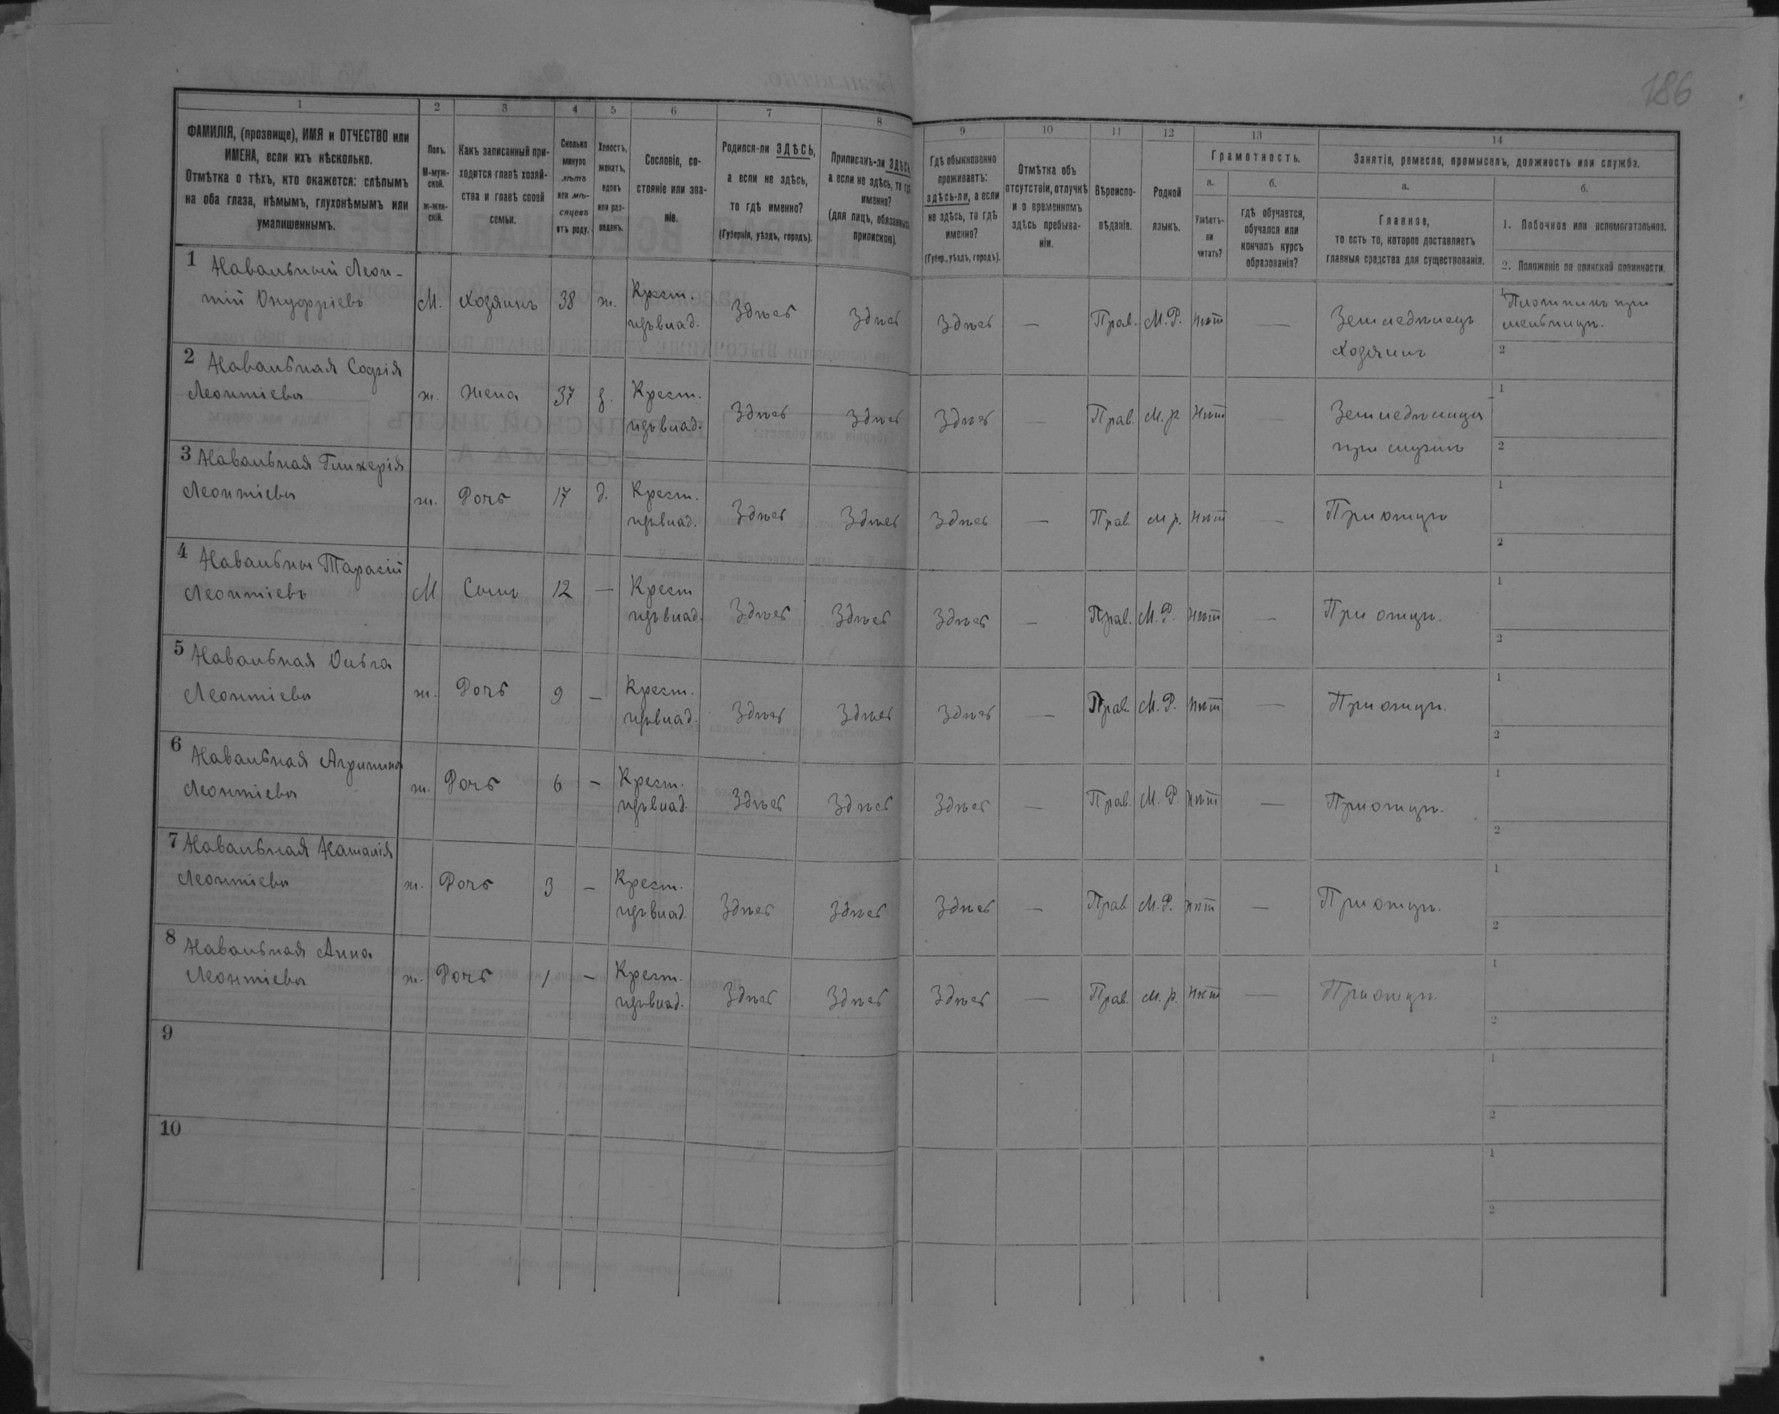 186
1 2 3 4 5 6 7 8 9 10 11 12 13 14
ФАМИЛІЯ, (прозвище), ИМЯ и ОТЧЕСТВО или
ИМЕНА, если ихъ нѣсколько.
Отмѣтка о тѣхъ, кто окажется: слѣпымъ
на оба глаза, нѣмымъ, глухонѣмымъ или
умалишеннымъ.
Полъ.
М-муж-
ской.
ж-жен-
скій.
Какъ записанный при-
ходится главѣ хозяй-
ства и главѣ своей
семьи.
Сколько
минуло
лѣтъ
или мѣ-
сяцевъ
отъ роду.
Холостъ,
женатъ,
вдовъ
или раз-
веденъ.
Сословіе, со-
стояніе или зва-
ніе.
Родился-ли ЗДѢСЬ,
а если не здѣсь,
то гдѣ именно?
(Губернія, уѣздъ, городъ).
Приписанъ-ли ЗДѢСЬ
а если не здѣсь, то гдѣ
именно?
(для лицъ, обязанныхъ
припискою).
Гдѣ обыкновенно
проживаетъ:
здѣсь-ли, а если
не здѣсь, то гдѣ
именно?
(Губер., уѣздъ, городъ).
Отмѣтка объ
отсутствіи, отлучкѣ
и о временномъ
здѣсь пребыва-
ніи.
Вѣроиспо-
вѣданіе.
Родной
языкъ.
Грамотность.
а.
Умѣетъ-
ли
читать?
б.
гдѣ обучается,
обучался или
кончилъ курсъ
образованія?
Занятія, ремесло, промыселъ, должность или служба.
а.
Главное,
то есть то, которое доставляетъ
главныя средства для существованія.
б.
1. Побочное или вспомогательное.
2. Положеніе по воинской повинности.
1 Навальный Леон-
тій Онуфріевъ М. Хозяинъ 38 ж. Крест.
Здѣсь Здѣсь Здѣсь — Прав. М.Р. нѣтъ — Земледѣлецъ
Хозяинъ
1 Плотникъ при
мельницѣ.
2
2 Навальная Софія
Леонтіева ж. жена 37 з. Крест.
Здѣсь Здѣсь Здѣсь — Прав. М.р. нѣтъ — Земледѣлица
при мужѣ
1
2
3 Навальная Гликерія
Леонтіева ж. Дочь 17 д. Крест.
Здѣсь Здѣсь Здѣсь — Прав. М.р. нѣтъ — При отцѣ
1
2
4 Навальны Тарасій
Леонтіевъ М Сынъ 12 — Крест
Здѣсь Здѣсь Здѣсь — Прав. М.Р. нѣтъ — При отцѣ.
1
2
5 Навальная Ольга
Леонтіева ж. Дочь 9 — Крест.
Здѣсь Здѣсь Здѣсь — Прав. М.Р. нѣтъ — При отцѣ.
1
2
6 Навальная Агрипина
Леонтіева ж. Дочь 6 — Крест.
Здѣсь Здѣсь Здѣсь — Прав. М.Р. нѣтъ — При отцѣ.
1
2
7 Навальная Наталія
Леонтіева ж. Дочь 3 — Крест.
Здѣсь Здѣсь Здѣсь — Прав М.Р. нѣтъ — При отцѣ.
1
2
8 Навальная Анна
Леонтіева ж. Дочь 1 — Крест.
Здѣсь Здѣсь Здѣсь — Прав. М.р. нѣтъ — При отцѣ.
1
2
9
1
2
10
1
2